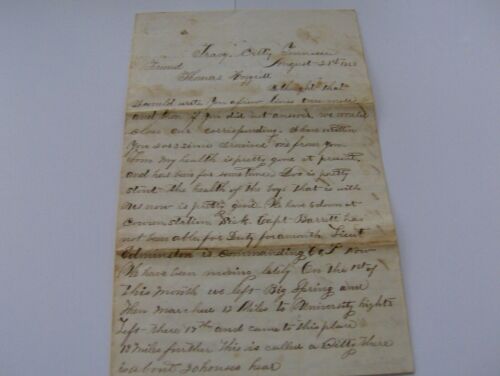 Tracy Citty Tennessee
August 21st 1863
Friend
Thomas
I thought that
I would write you a few lines once more
and then if you did not answer we would
close our corresponding I have written
you since I received one from you
 my health is pretty good at present
and has been for sometime Doc is pretty
stout the health of the boys that is with
us now is pretty good We have sdom at
Cowan station Sick Capt Barrett has
not been able for Duty for a month Lieut
Edminston is commanding Co I now
We have been moving lately On the 1st of
this month we left Big Spring and
then marched 12 Miles to University hights
left there 17th and came to this place
12 Miles further this is called a Citty there
is about 20 houses hear